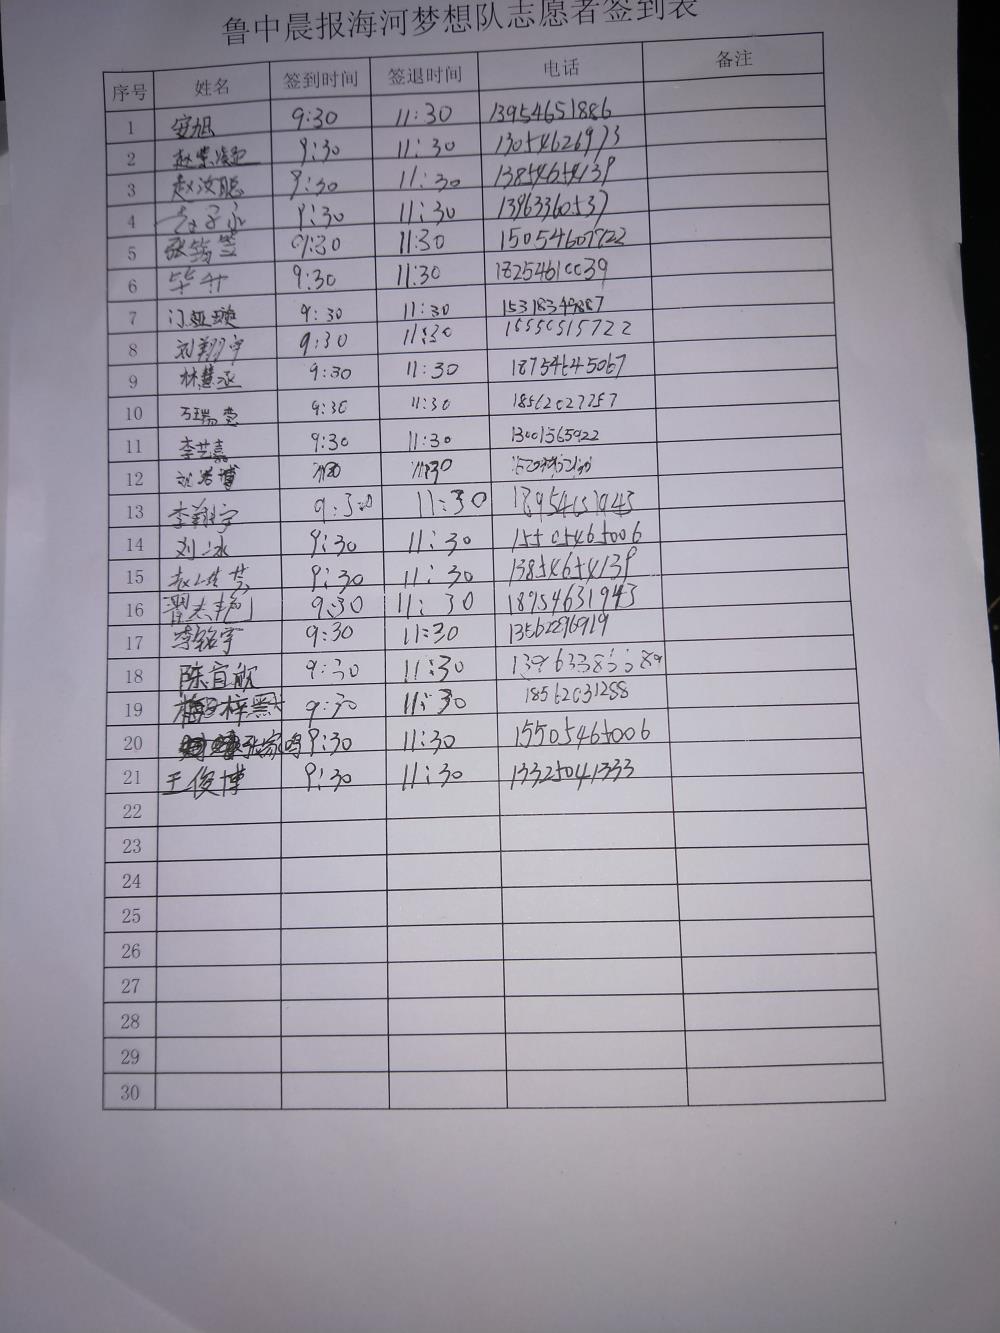 鲁中晨报海河梦想队志愿者签到表
序号 姓名 签到时间 签退时间 电话 备注
1 安旭 9:30 11:30 13954651886
2 赵 9:30 11:30 13054626973
3 赵汝聪 9:30 11:30 13854654139
4 9:30 11:30 13963360537
5 张 9:30 11:30 15054607722
6 毕升 9:30 11:30 18254610039
7 门亚璇 9:30 11:30 15318349887
8 刘翔宇 9:30 11:30 15550515722
9 林慧丞 9:30 11:30 18754645067
10 9:30 11:30 18562027757
11 李艺嘉 9:30 11:30 13001565922
12 11:30
13 李翔宇 9:30 11:30 18954631943
14 刘冰 9:30 11:30 15505465006
15 赵 9:30 11:30 13854654139
16 翟志 9:30 11:30 18954631943
17 李铭宇 9:30 11:30 13562296919
18 陈宜歆 9:30 11:30
19 梅梓黑 9:30 11:30 18562031288
20 张家鸣 9:30 11:30 15505465006
21 王俊博 9:30 11:30 13325041333
22
23
24
25
26
27
28
29
30